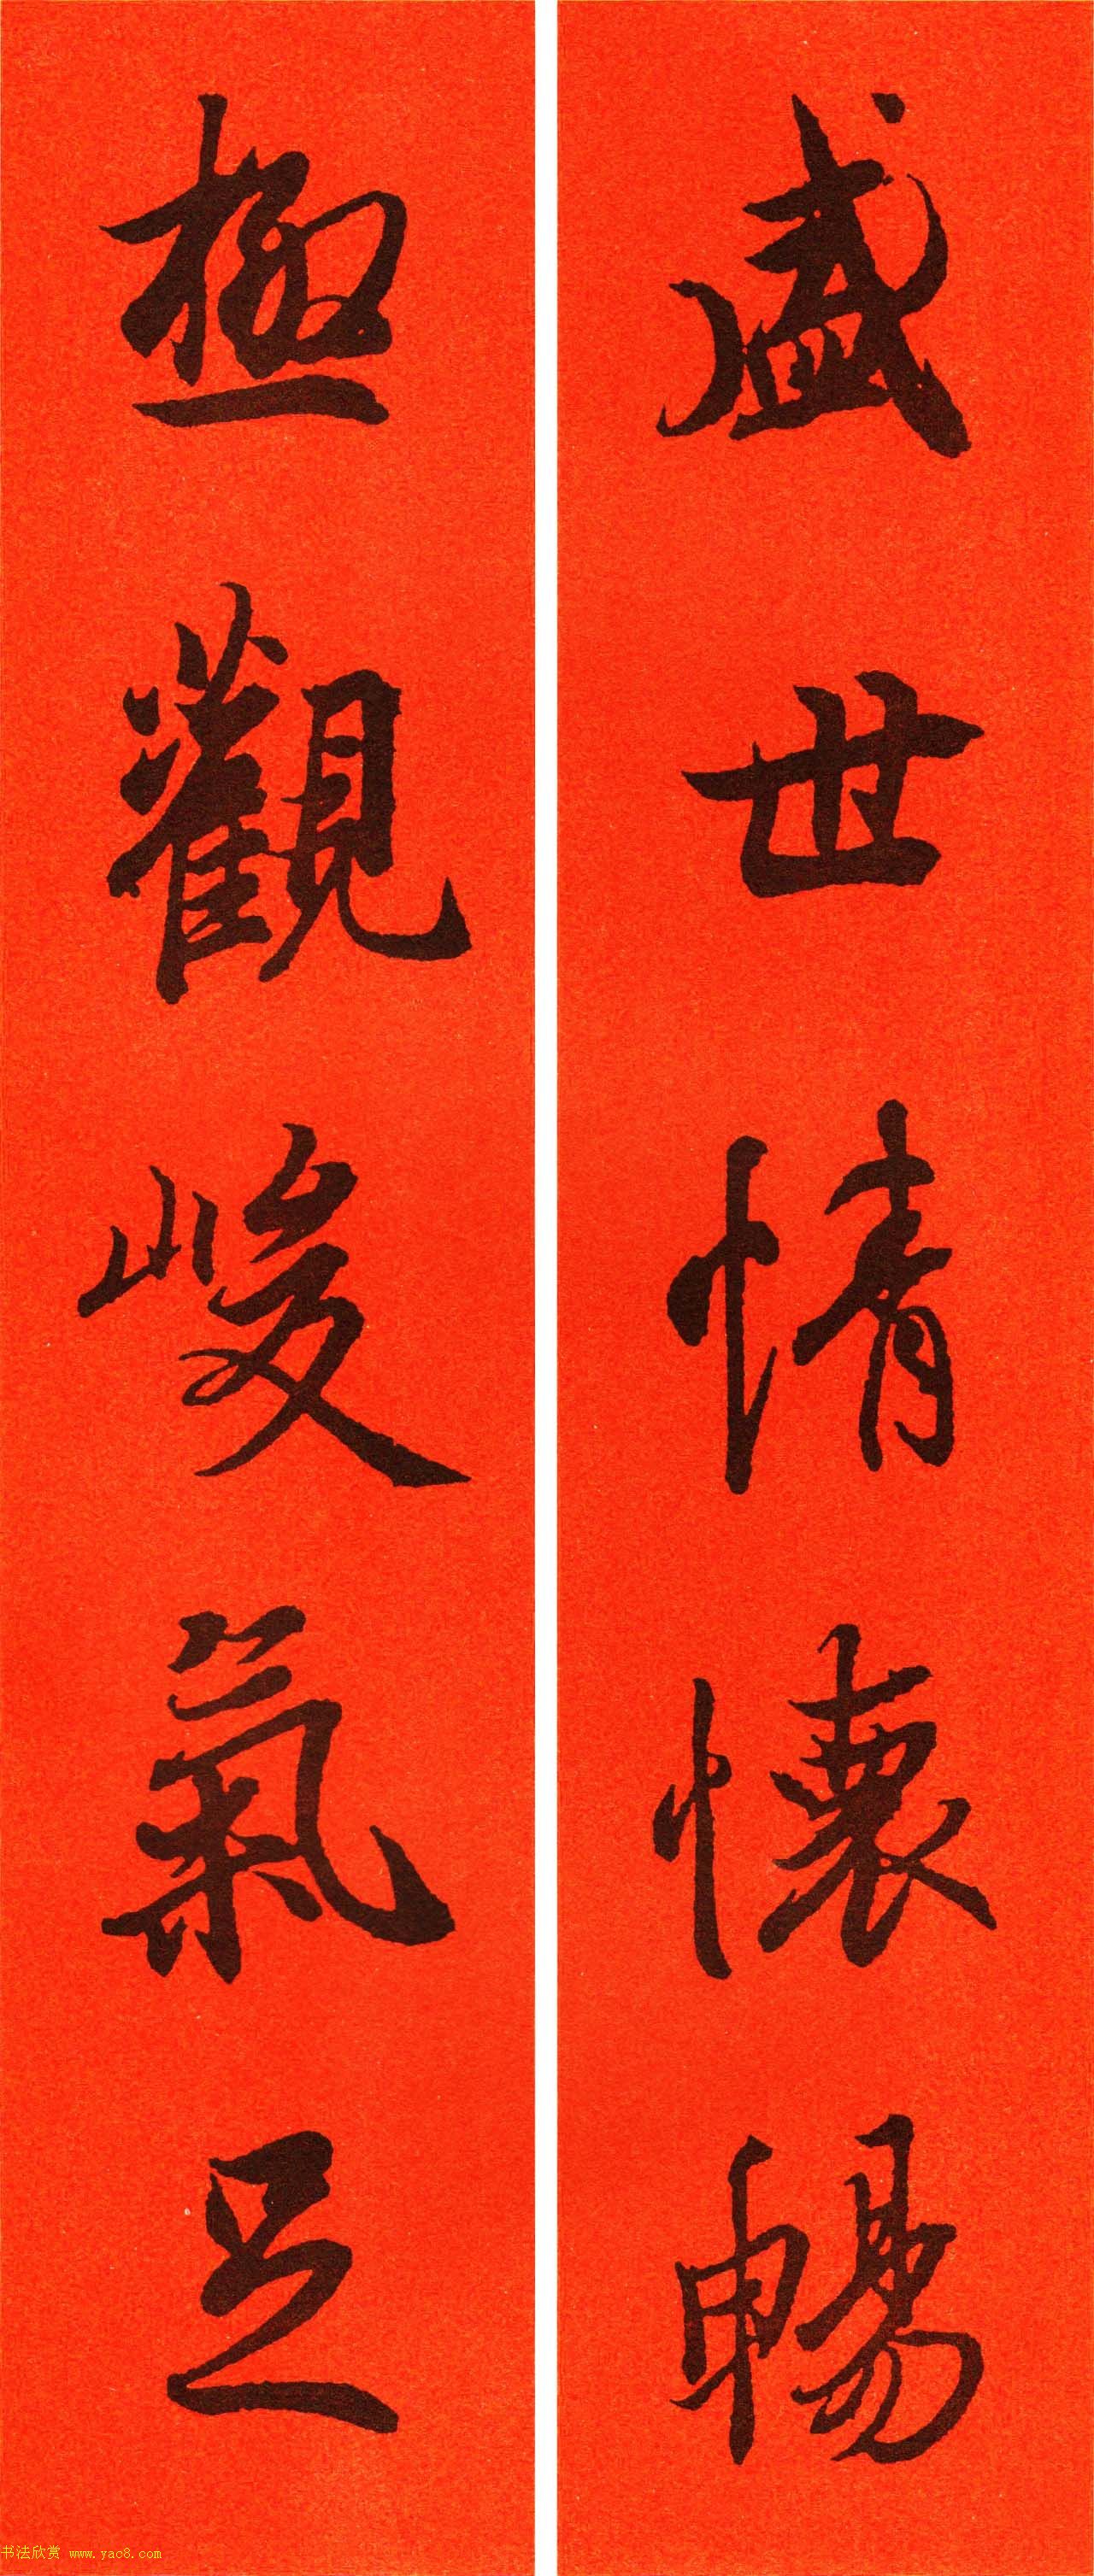 盛世情懷暢
極觀峻氣足
书法欣赏 www.yac8.com